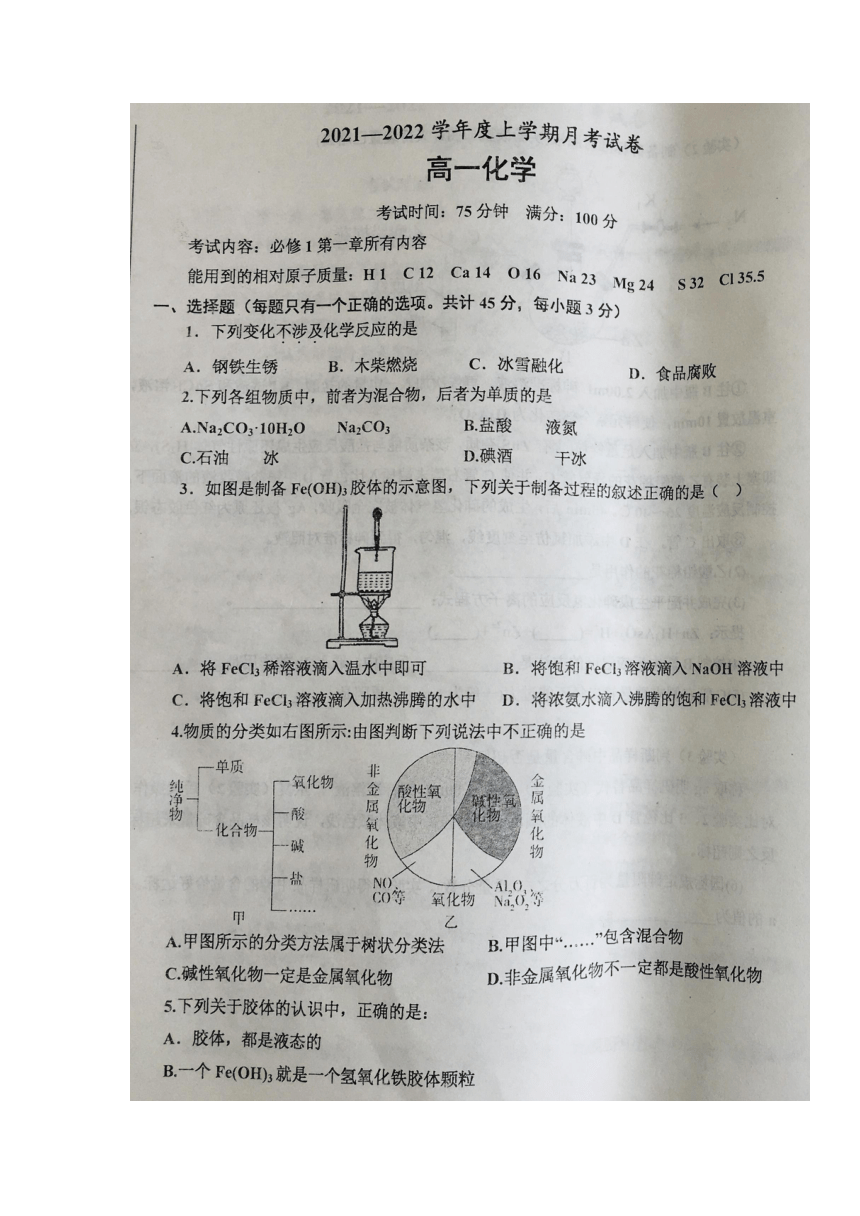 2021—2022 学年度上学期月考试卷
高一化学
考试时间：75 分钟 满分：100 分
考试内容：必修 1 第一章所有内容
能用到的相对原子质量：H 1 C 12 Ca 14 O 16 Na 23 Mg 24 S 32 Cl 35.5
一、选择题（每题只有一个正确的选项。共计 45 分，每小题 3 分）
1．下列变化不涉及化学反应的是
A．钢铁生锈 B．木柴燃烧 C．冰雪融化 D．食品腐败
2.下列各组物质中，前者为混合物，后者为单质的是
A.Na₂CO₃·10H₂O Na₂CO₃ B.盐酸 液氮
C.石油 冰 D.碘酒 干冰
3．如图是制备 Fe(OH)₃ 胶体的示意图，下列关于制备过程的叙述正确的是（ ）
A．将 FeCl₃ 稀溶液滴入温水中即可 B．将饱和 FeCl₃ 溶液滴入 NaOH 溶液中
C．将饱和 FeCl₃ 溶液滴入加热沸腾的水中 D．将浓氨水滴入沸腾的饱和 FeCl₃ 溶液中
4.物质的分类如右图所示:由图判断下列说法中不正确的是
纯净物
单质
化合物
氧化物
酸
碱
盐
……
甲
非金属氧化物
酸性氧化物
碱性氧化物
金属氧化物
NO、CO等
氧化物
Al₂O₃、Na₂O₂等
乙
A.甲图所示的分类方法属于树状分类法 B.甲图中“……”包含混合物
C.碱性氧化物一定是金属氧化物 D.非金属氧化物不一定都是酸性氧化物
5.下列关于胶体的认识中，正确的是：
A．胶体，都是液态的
B.一个 Fe(OH)₃ 就是一个氢氧化铁胶体颗粒